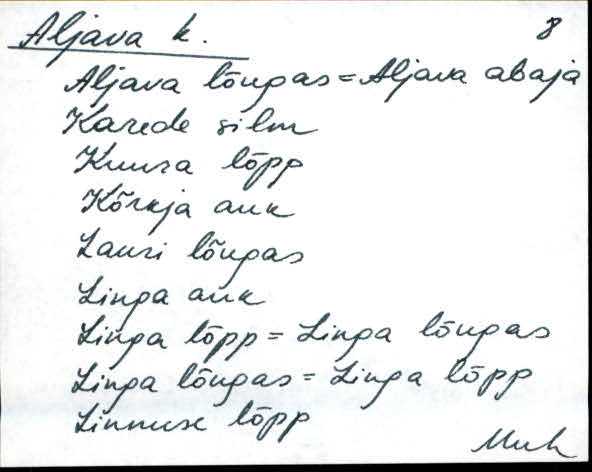 Aljava k. 8
Aljava lõugas = Aljava abaja
Karede silm
Kuura lõpp
Kõrkja auk
Lauri lõugas
Linga auk
Linga lõpp = Linga lõugas
Linga lõugas = Linga lõpp
Linnuse lõpp
Muh